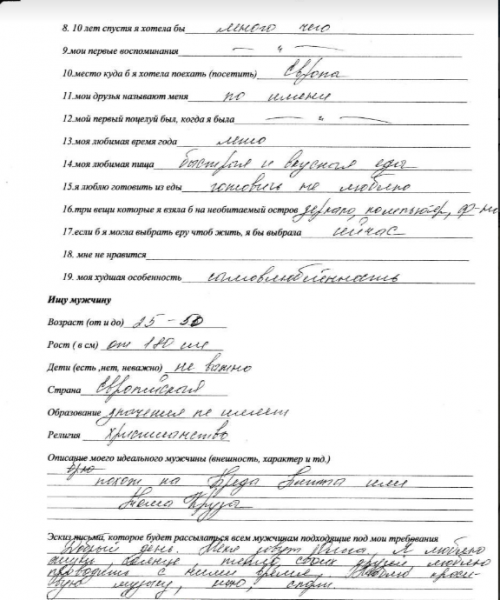 8. 10 лет спустя я хотела бы много чего
9.мои первые воспоминания — " —
10.место куда б я хотела поехать (посетить) Европа
11.мои друзья называют меня по имени
12.мой первый поцелуй был, когда я была — " —
13.моя любимая время года лето
14.моя любимая пища быстрая и вкусная еда
15.я люблю готовить из еды готовить не люблю
16.три вещи которые я взяла б на необитаемый остров зеркало, компьютер,
17.если б я могла выбрать еру чтоб жить, я бы выбрала сейчас
18. мне не нравится
19. моя худшая особенность самовлюблённость
Ищу мужчину
Возраст (от и до) 25 - 50
Рост ( в см) от 180 см
Дети (есть ,нет, неважно) не важно
Страна Европейская
Образование значения не имеет
Религия Христианство
Описание моего идеального мужчины (внешность, характер и тд.)
похож на Бреда Питта или
Тома Круза
Эскиз письма, которое будет рассылаться всем мужчинам подходящие под мои требования
Добрый день. Меня зовут Я люблю
солнце, тепло, своих друзей, люблю
проводить с ними время. Люблю
музыку, спорт.